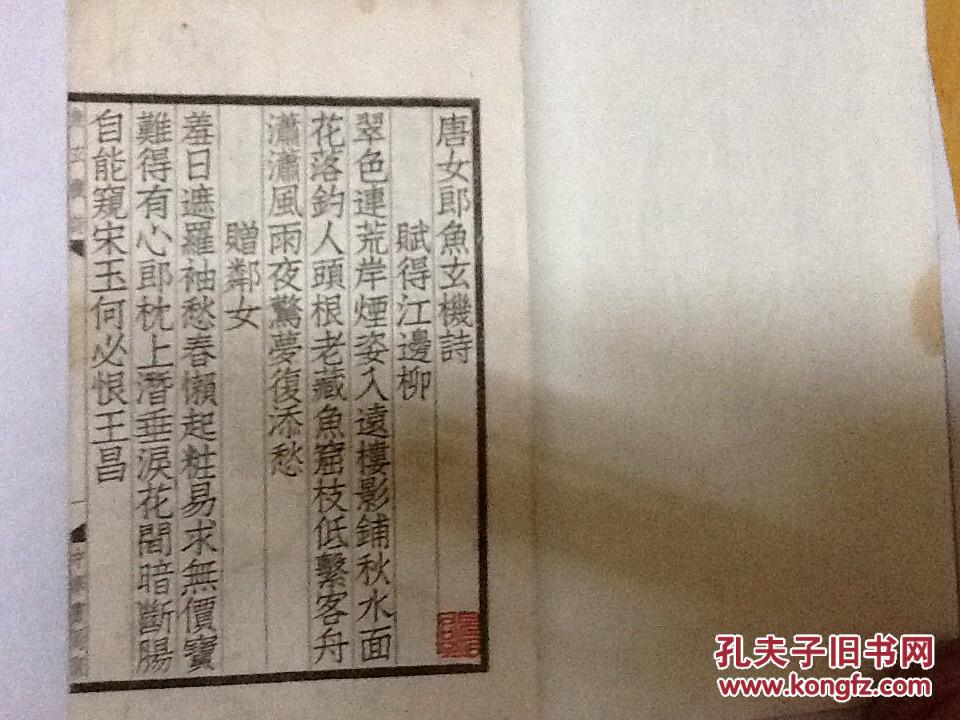 唐女郎魚玄機詩
賦得江邊柳
翠色連荒岸煙姿入遠樓影鋪秋水面
花落釣人頭根老藏魚窟枝低繫客舟
瀟瀟風雨夜驚夢復添愁
贈鄰女
羞日遮羅袖愁春懶起粧易求無價寶
難得有心郎枕上潛垂淚花間暗斷腸
自能窺宋玉何必恨王昌
孔夫子旧书网
www.kongfz.com